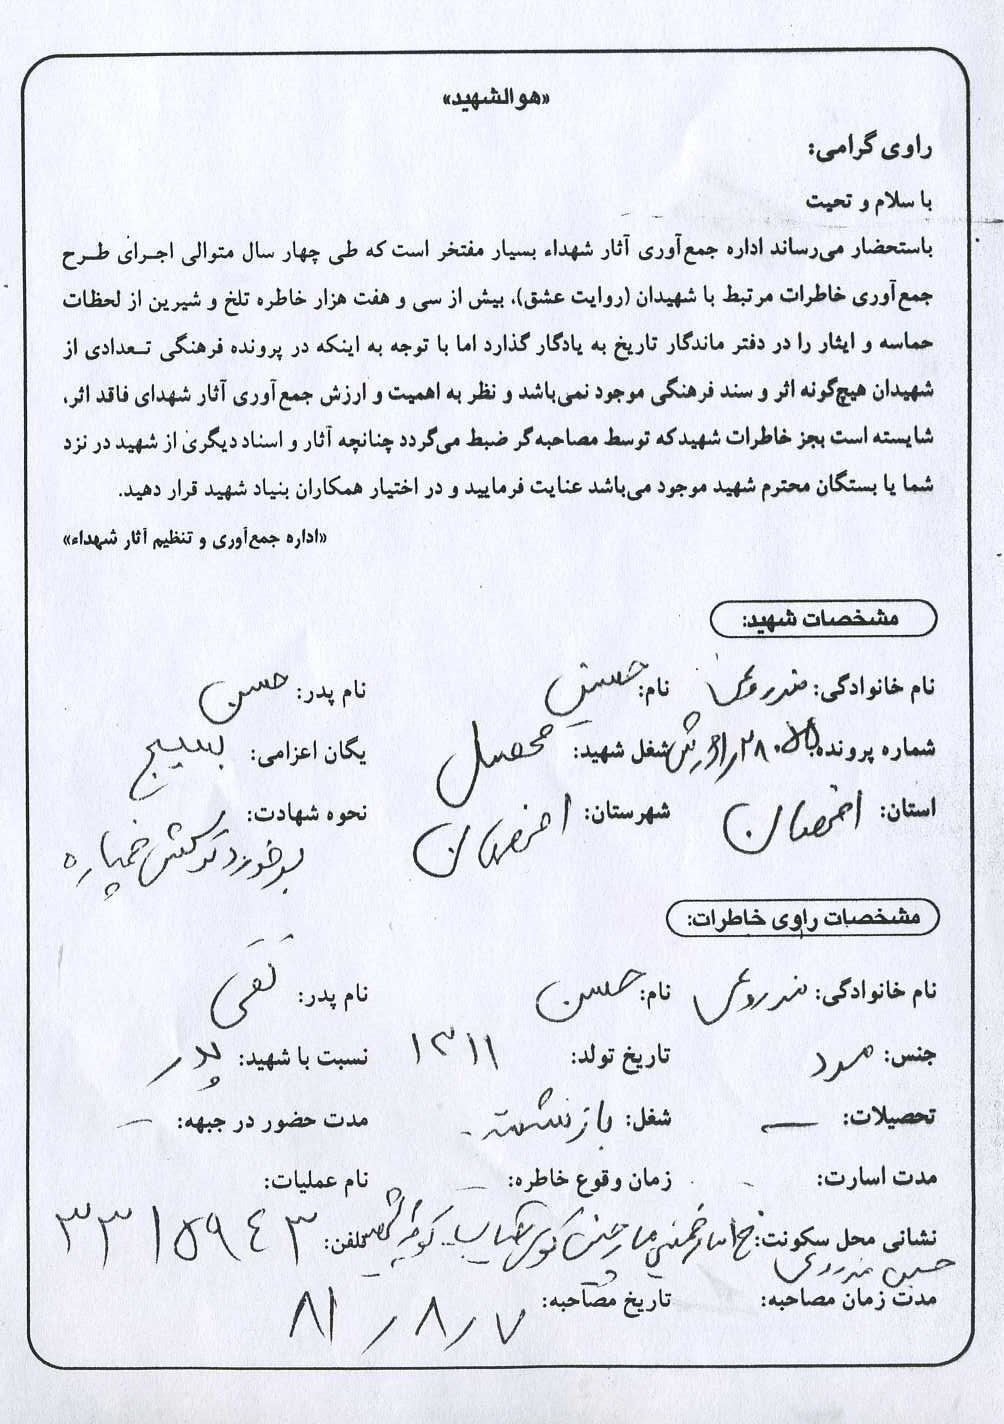 «هو الشهید»
راوی گرامی:
با سلام و تحیت
باستحضار می‌رساند اداره جمع‌آوری آثار شهداء بسیار مفتخر است که طی چهار سال متوالی اجرای طرح
جمع‌آوری خاطرات مرتبط با شهیدان (روایت عشق)، بیش از سی و هفت هزار خاطره تلخ و شیرین از لحظات
حماسه و ایثار را در دفتر ماندگار تاریخ به یادگار گذارد اما با توجه به اینکه در پرونده فرهنگی تعدادی از
شهیدان هیچ‌گونه اثر و سند فرهنگی موجود نمی‌باشد و نظر به اهمیت و ارزش جمع‌آوری آثار شهدای فاقد اثر،
شایسته است بجز خاطرات شهیدکه توسط مصاحبه‌گر ضبط می‌گردد چنانچه آثار و اسناد دیگری از شهید در نزد
شما یا بستگان محترم شهید موجود می‌باشد عنایت فرمایید و در اختیار همکاران بنیاد شهید قرار دهید.
«اداره جمع‌آوری و تنظیم آثار شهداء»
مشخصات شهید:
نام خانوادگی: نام: حسین نام پدر: حسن
شماره پرونده: شغل شهید: محصل یگان اعزامی: بسیج
استان: اصفهان شهرستان: اصفهان نحوه شهادت:
برخورد ترکش خمپاره
مشخصات راوی خاطرات:
نام خانوادگی: نام: حسن نام پدر: تقی
جنس: مرد تاریخ تولد: ۱۳۱۱ نسبت با شهید: پدر
تحصیلات: — شغل: بازنشسته مدت حضور در جبهه: —
مدت اسارت: زمان وقوع خاطره: نام عملیات:
نشانی محل سکونت: خ امام خمینی کوچه شهید تلفن: ۳۳۱۵۹۴۳
حسین
مدت زمان مصاحبه: تاریخ مصاحبه: ۸۱/۸/۷